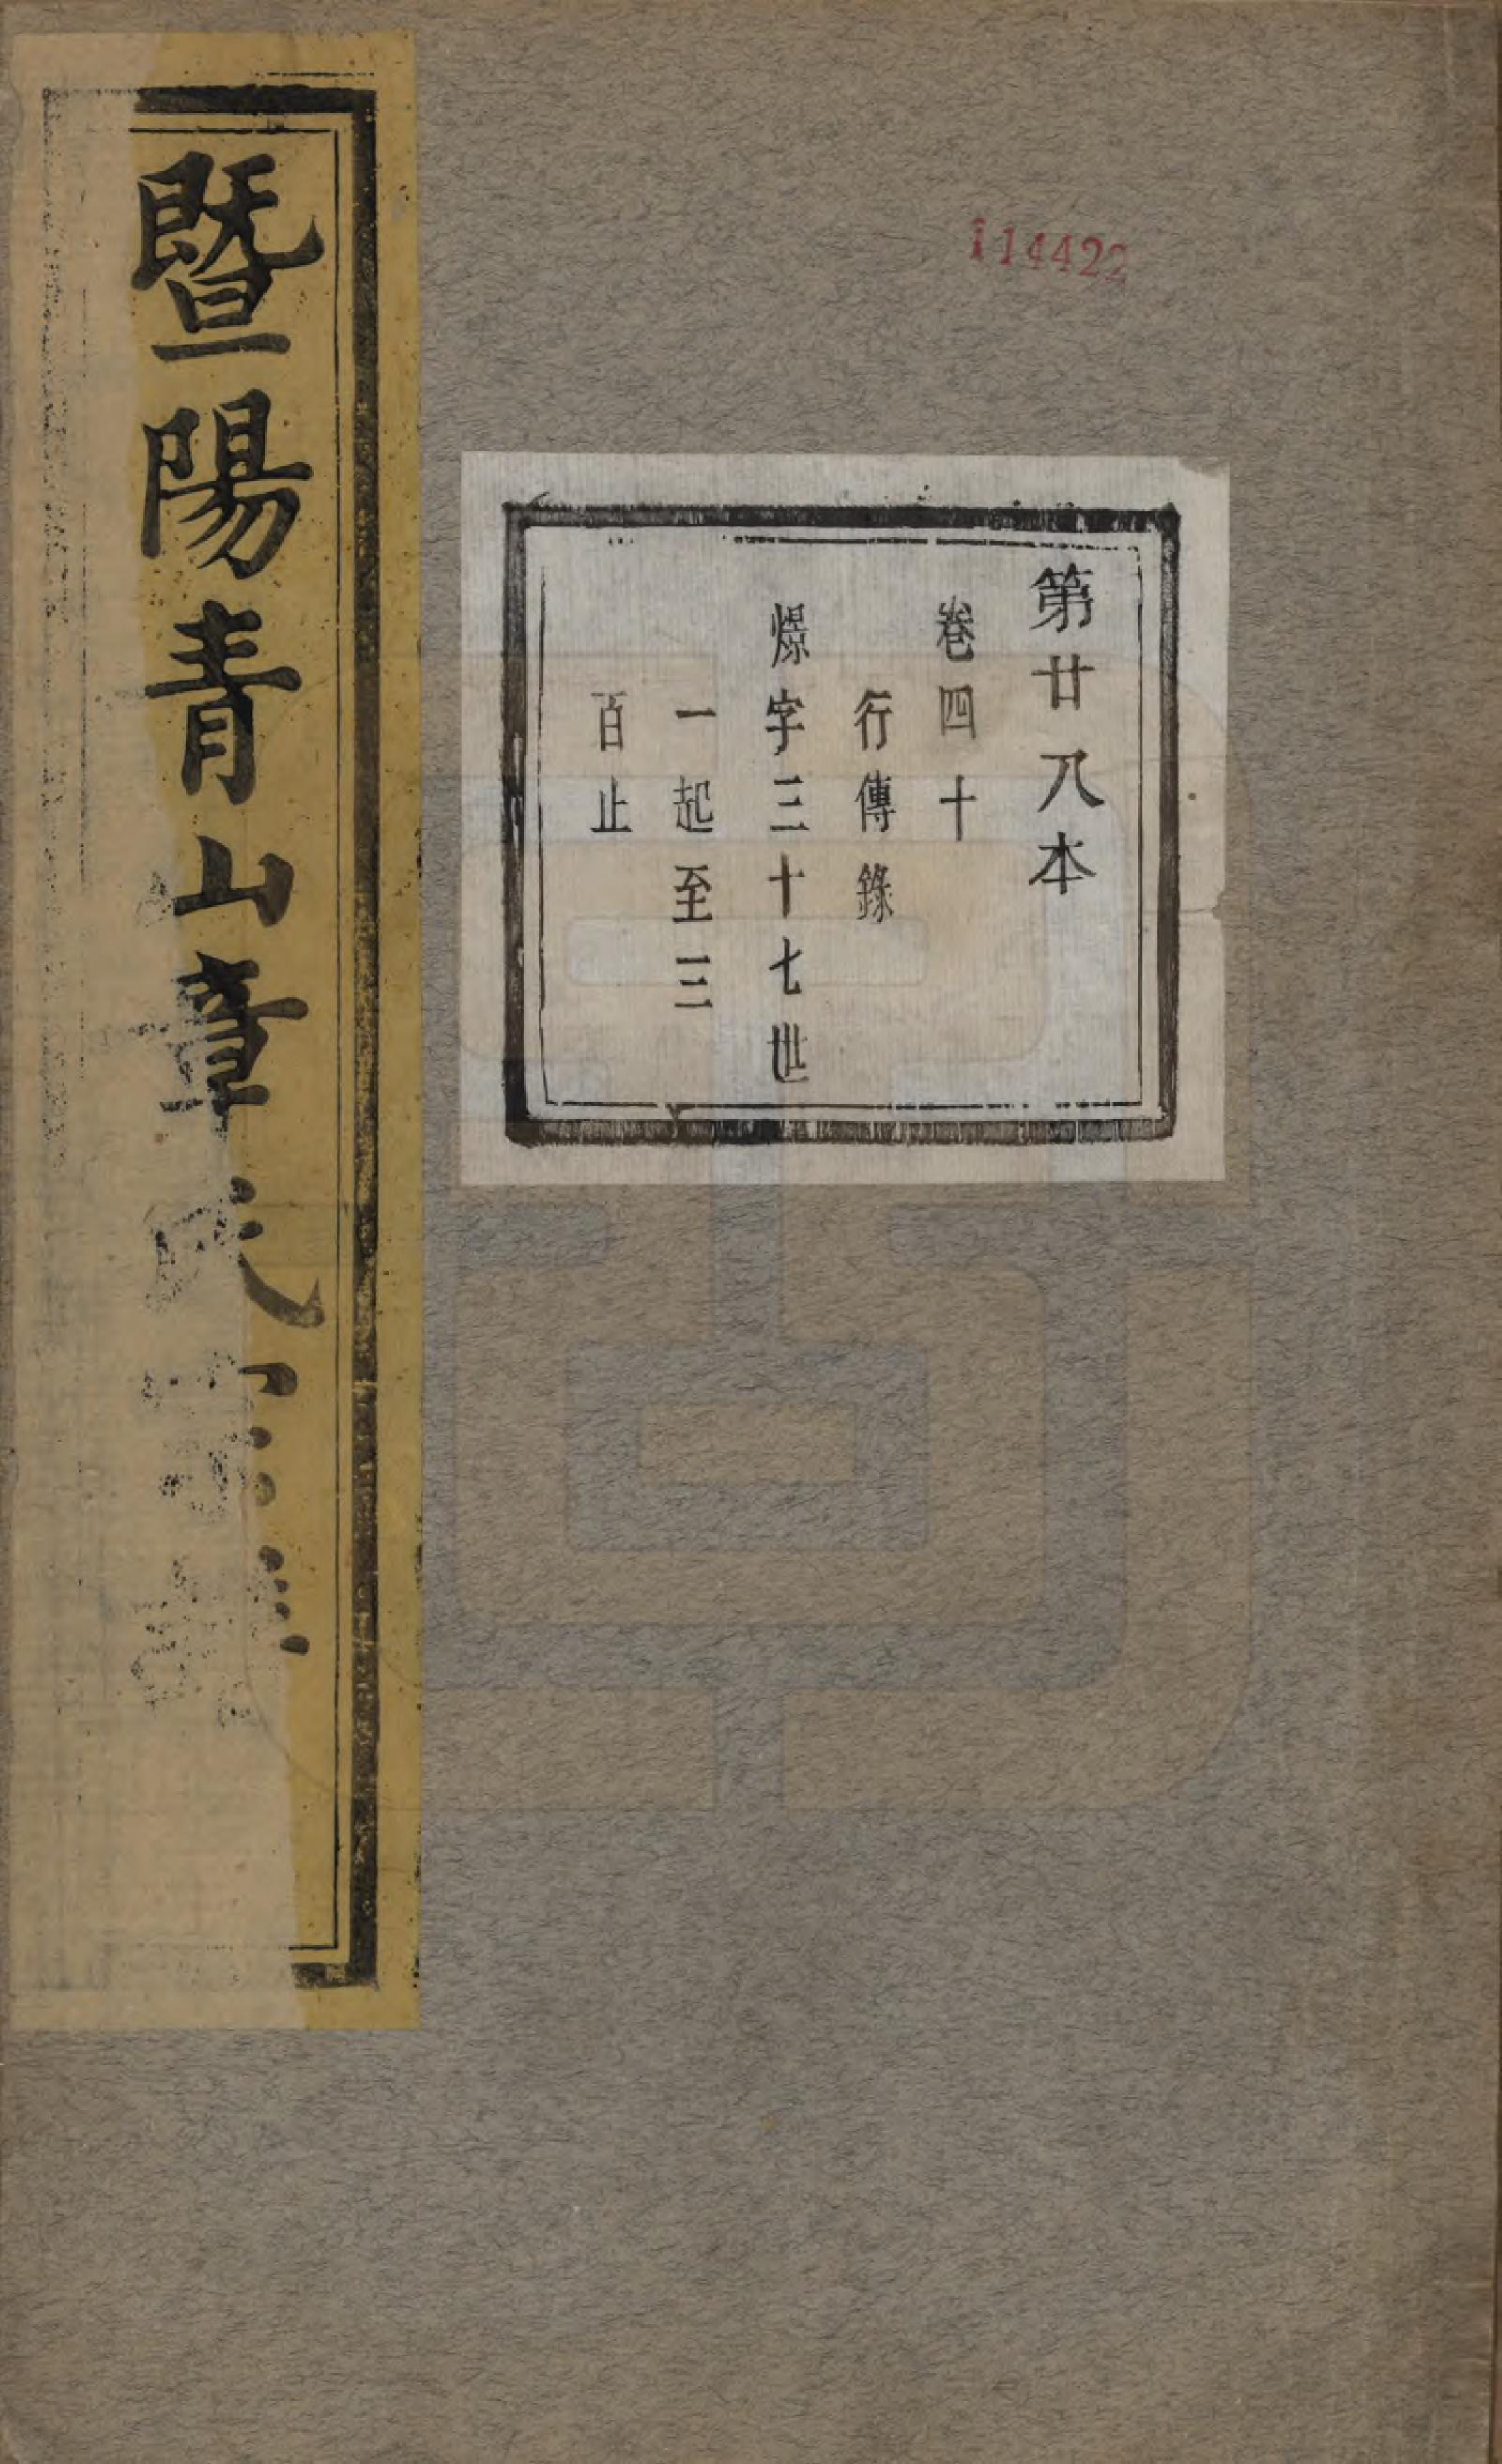 114422
第廿八本
卷四十
行傳錄
爆字三十七世
一起至三
百止
暨陽青山章氏宗譜